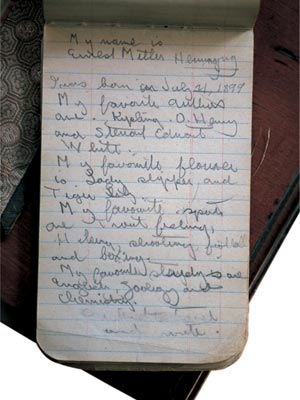 My name is
Ernest Miller Hemingway
I was born on July 21, 1899
My favorite authies
are. Kipling, O. Henry
and Steuart Edward
White.
My favourite flower
is Lady slipper and
Tiger Lily.
My favourite sports
are Trout fishing,
Hikeing, shooting, football
and boxing.
My favorite studys are
English, Zoology and
Chemistry.
and write.